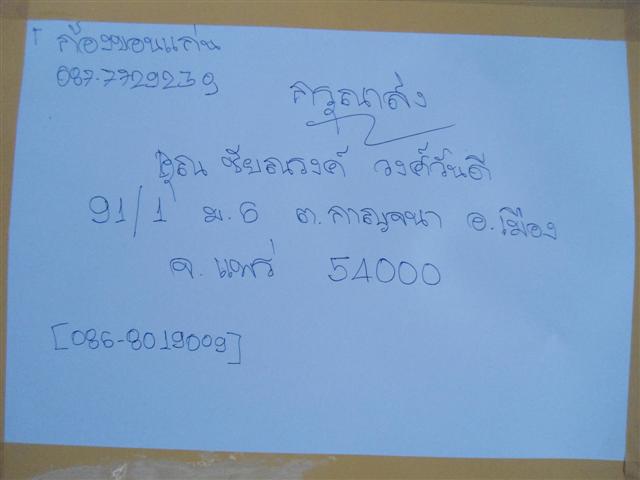 ก้องขอนแก่น
087-7729239
กรุณาส่ง
คุณ ชัยณรงค์ วงศ์วันดี
91/1 ม.6 ต.กาญจนา อ.เมือง
จ.แพร่ 54000
[086-8019009]